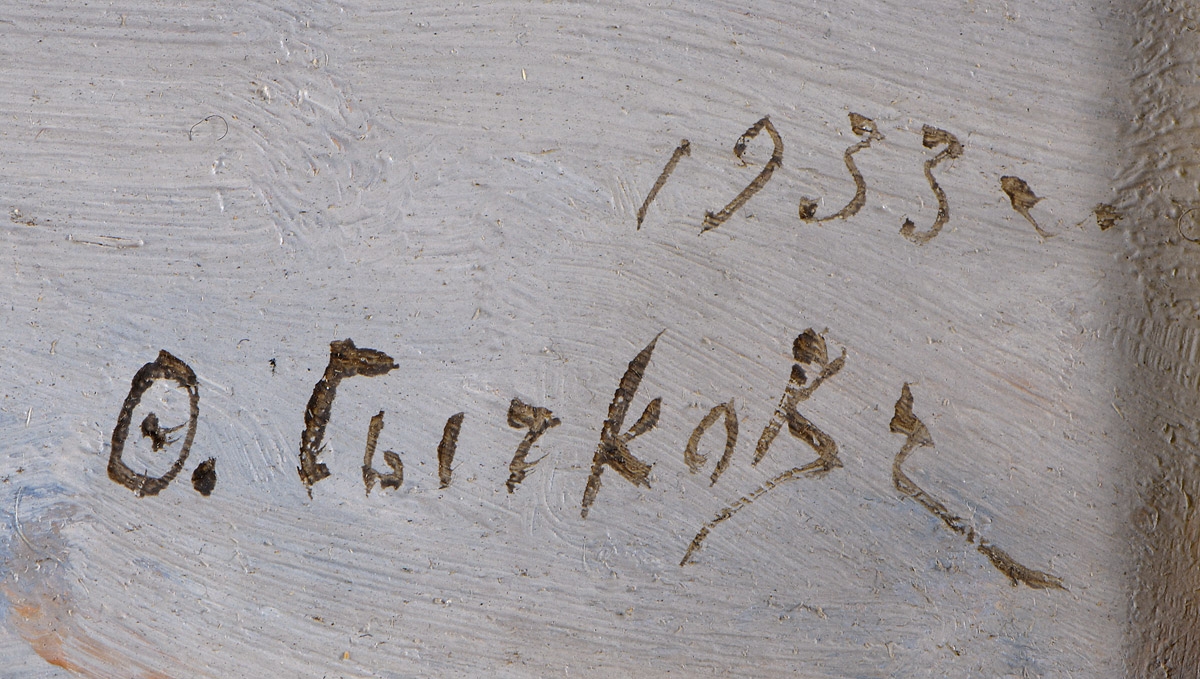 1933.
Ѳ. Сычковъ